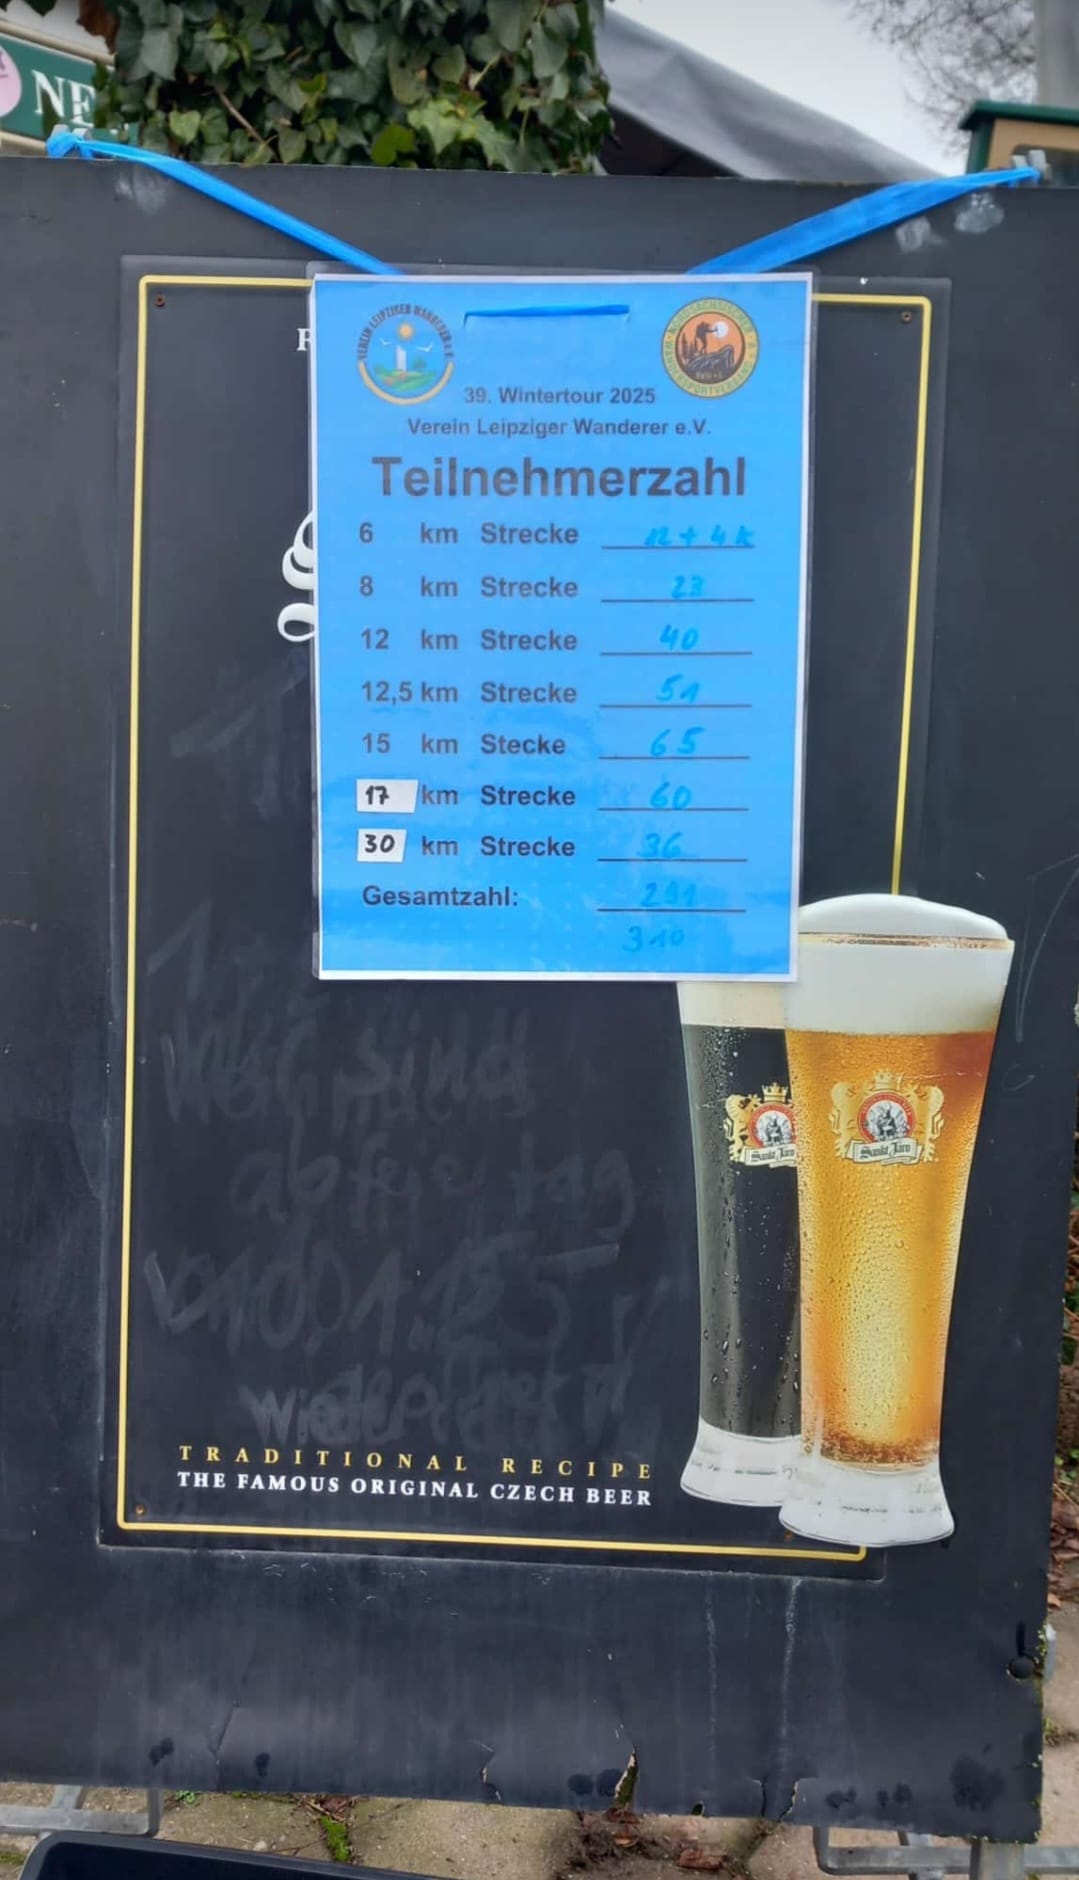 NE
VEREIN LEIPZIGER WANDERER e.V.
39. Wintertour 2025
Verein Leipziger Wanderer e.V.
Teilnehmerzahl
6 km Strecke 12 + 4 K
8 km Strecke 23
12 km Strecke 40
12,5 km Strecke 51
15 km Stecke 65
17 km Strecke 60
30 km Strecke 36
Gesamtzahl: 291
310
sind
Sankt Jaro
Sankt Jaro
TRADITIONAL RECIPE
THE FAMOUS ORIGINAL CZECH BEER